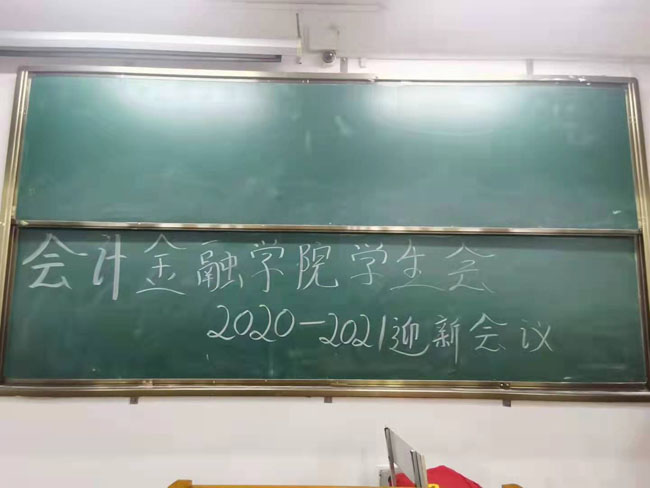 会计金融学院学生会
2020-2021迎新会议